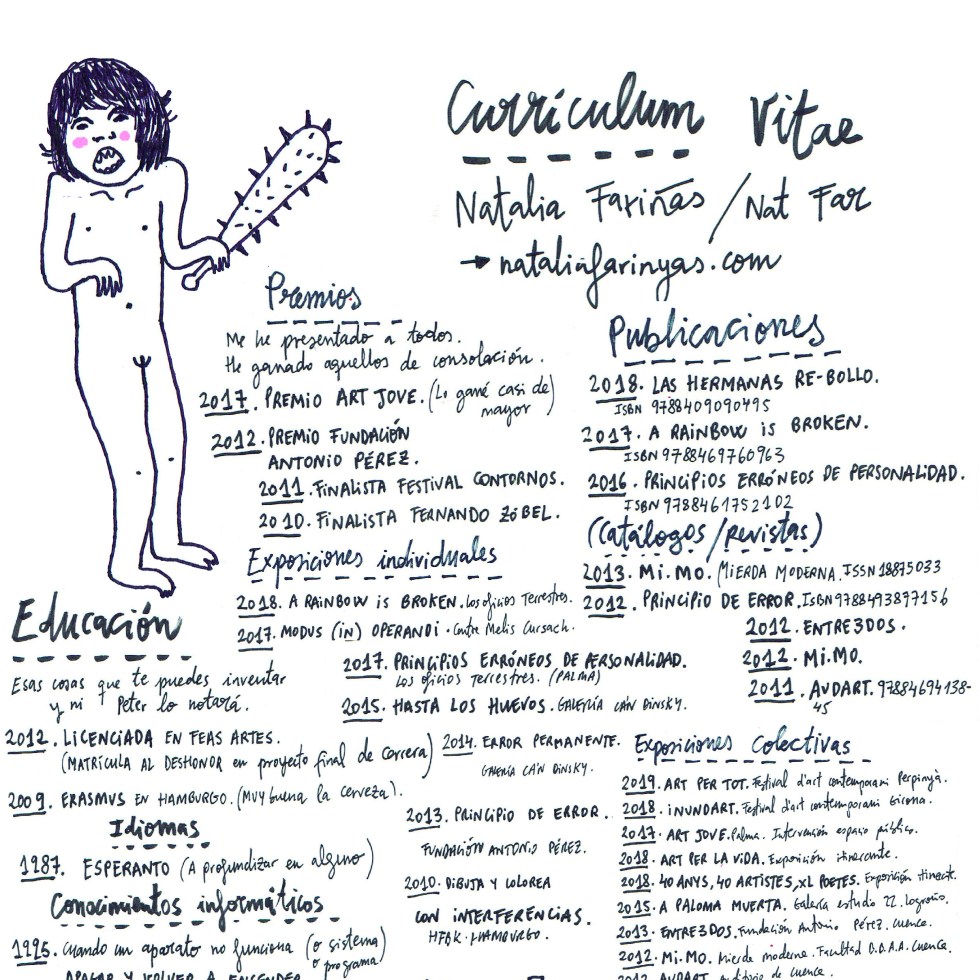 Curriculum Vitae
Natalia Fariñas / Nat Far
→ nataliafarinyas.com
Premios
Me he presentado a todos.
He ganado aquellos de consolación.
2017. PREMIO ART JOVE. (Lo gané casi de
mayor)
2012. PREMIO FUNDACIÓN
ANTONIO PÉREZ.
2011. FINALISTA FESTIVAL CONTORNOS.
2010. FINALISTA FERNANDO ZÓBEL.
Exposiciones individuales
2018. A RAINBOW iS BROKEN. Los oficios Terrestres.
2017. MODUS (IN) OPERANDI. Centre Melis Cursach.
2017. PRINCIPIOS ERRÓNEOS DE PERSONALIDAD.
Los oficios Terrestres. (PALMA)
2015. HASTA LOS HUEVOS. GALERÍA CA'N DINSKY.
2014. ERROR PERMANENTE.
GALERÍA CA'N DINSKY.
2013. PRINCIPIO DE ERROR.
FUNDACIÓN ANTONIO PÉREZ.
2010. DIBUJA Y COLOREA
CON INTERFERENCIAS.
HFBK. HAMBURGO.
Publicaciones
2018. LAS HERMANAS RE-BOLLO.
ISBN 9788409090495
2017. A RAINBOW iS BROKEN.
ISBN 9788469760963
2016. PRINCIPIOS ERRÓNEOS DE PERSONALIDAD.
ISBN 9788461752102
(Catálogos/revistas)
2013. Mi.MO. (MIERDA MODERNA. ISSN 18875033
2012. PRINCIPIO DE ERROR. ISBN 9788493897156
2012. ENTRE3DOS.
2012. Mi.MO.
2011. AVDART. 97884694138-
45
Exposiciones Colectivas
2019. ART PER TOT. Festival d'art contemporani Perpinyà.
2018. INUNDART. Festival d'art contemporani Girona.
2017. ART JOVE. Palma. Intervención espacio público.
2018. ART PER LA VIDA. Exposición itinerante.
2018. 40 ANYS, 40 ARTISTES, XL POETES. Exposición itinerante.
2015. A PALOMA MUERTA. Galería estudio 22. Logroño.
2013. ENTRE3DOS. Fundación Antonio Pérez. Cuenca.
2012. Mi.MO. Mierda moderna. Facultad B.B.A.A. Cuenca.
2012. AVDART. Auditorio de Cuenca.
Educación
Esas cosas que te puedes inventar
y ni Peter lo notará.
2012. LICENCIADA EN FEAS ARTES.
(MATRÍCULA AL DESHONOR en proyecto final de carrera)
2009. ERASMUS EN HAMBURGO. (MUY buena la cerveza).
Idiomas
1987. ESPERANTO (A profundizar en alguno)
Conocimientos informáticos
1995. Cuando un aparato no funciona (o sistema)
o programa)
APAGAR Y VOLVER A ENCENDER